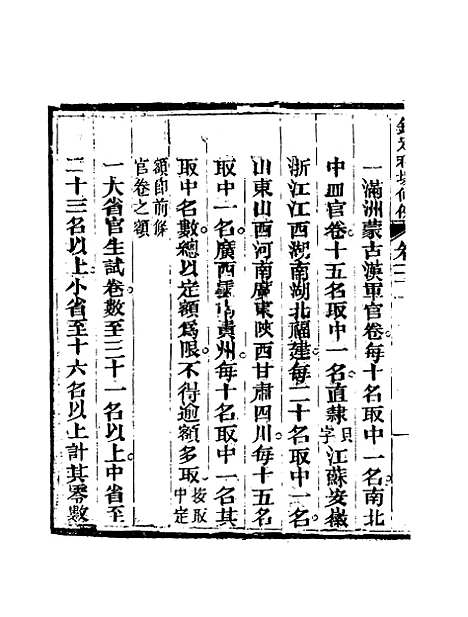 欽定科場條例 卷二
一滿洲蒙古漢軍官卷每十名取中一名南北
中皿官卷十五名取中一名直隸貝字江蘇安徽
浙江江西湖南湖北福建每二十名取中一名
山東山西河南廣東陝西甘肅四川每十五名
取中一名廣西雲南貴州每十名取中一名其
取中名數總以定額為限不得逾額多取按取中定
額卽前條
官卷之額
一大省官生試卷數至三十一名以上中省至
二十三名以上小省至十六名以上計其零數